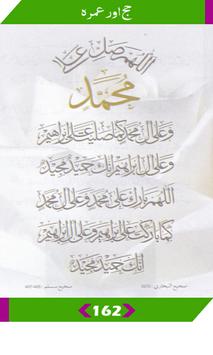 حج اور عمرہ
اللهم صل على
محمد
وعلى آل محمد كما صليت على إبراهيم
وعلى آل إبراهيم إنك حميد مجيد
اللهم بارك على محمد وعلى آل محمد
كما باركت على إبراهيم وعلى آل إبراهيم
إنك حميد مجيد
صحيح البخاري صحيح مسلم
162